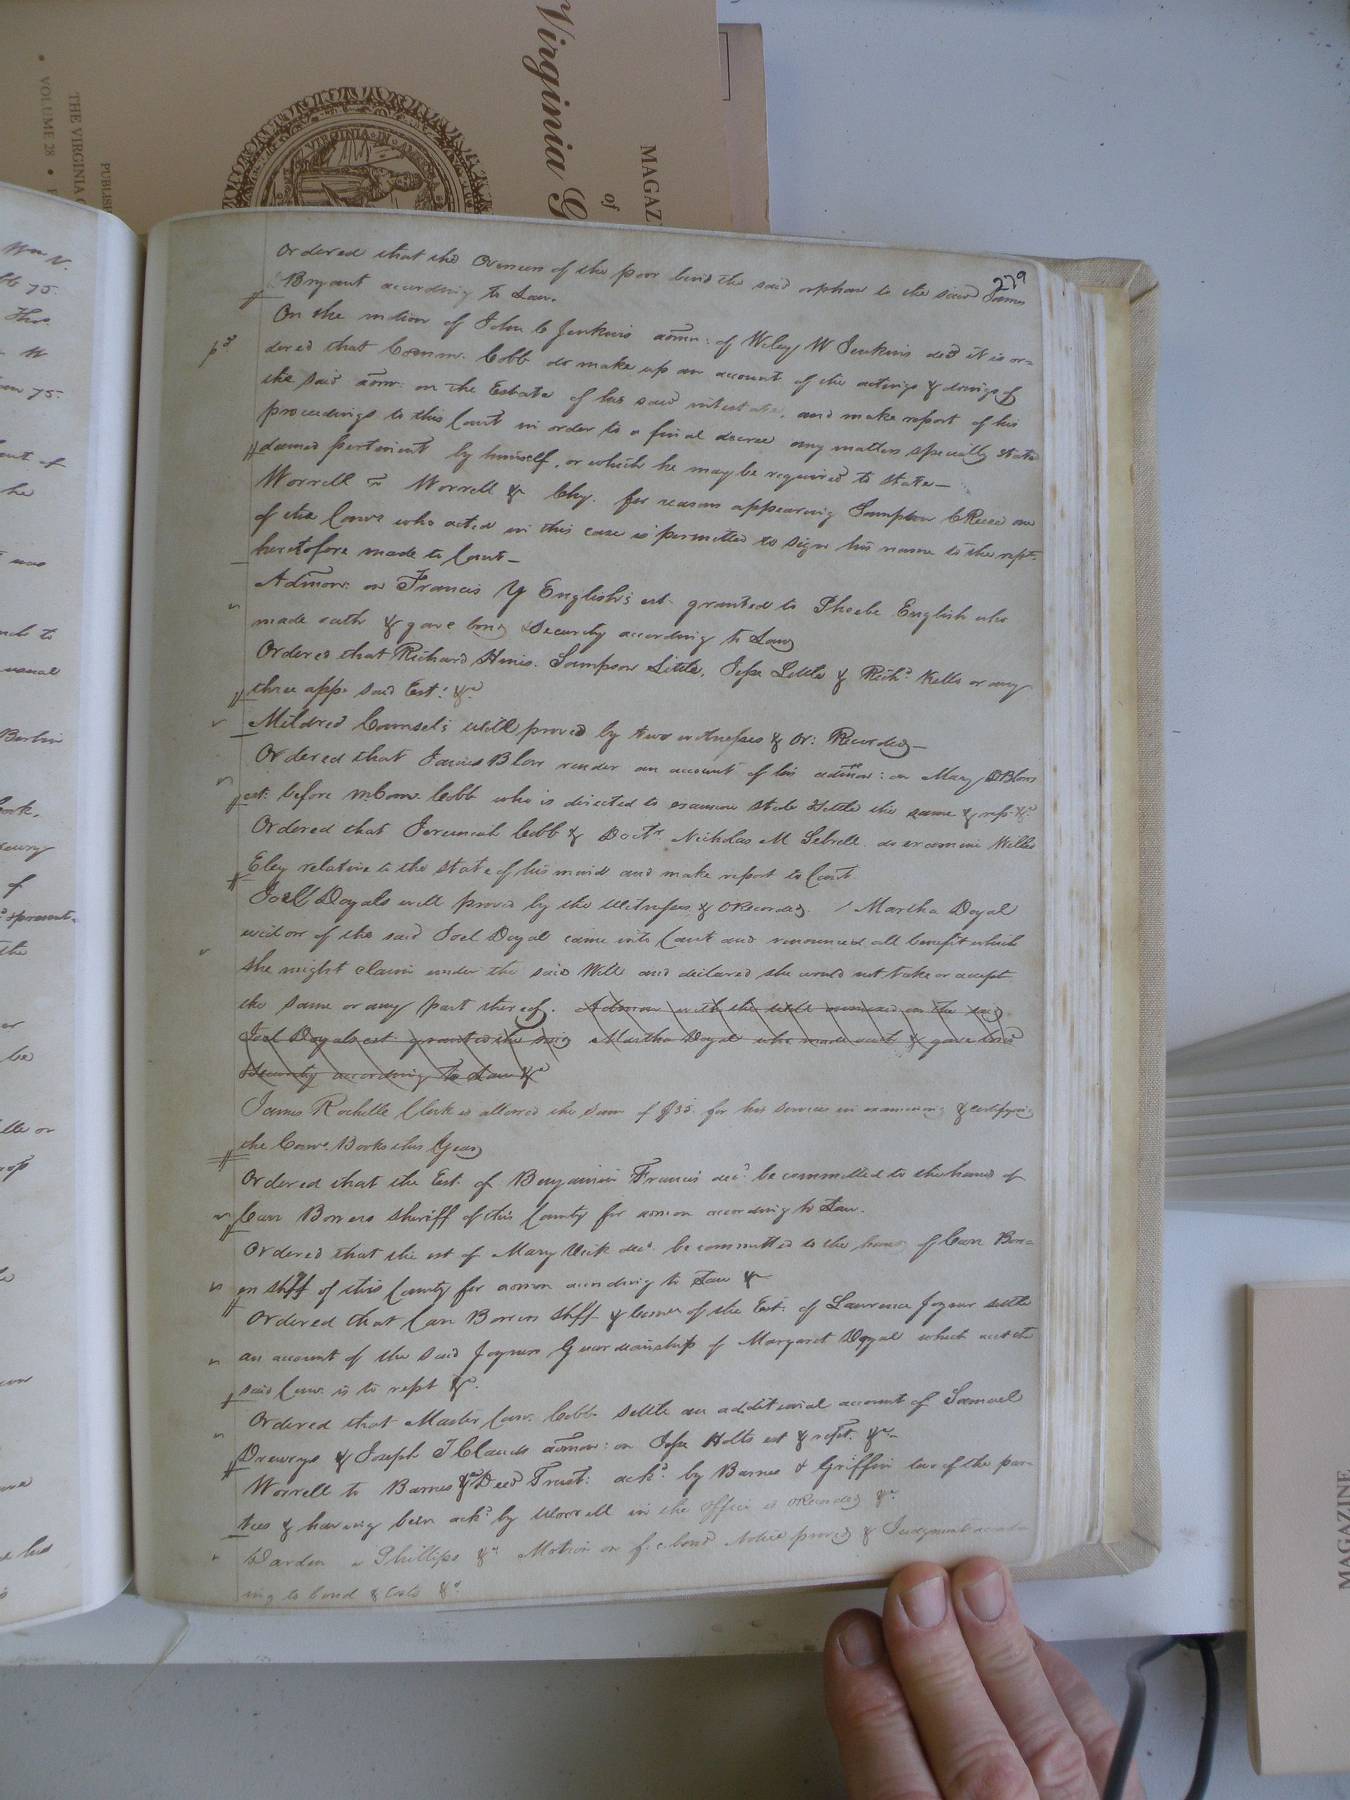 Virginia G
MAGAZ
of
PUBLISH
THE VIRGINIA
VOLUME 28
VIRGINIA
279
Ordered that the Overseers of the poor bind the said orphan to the said James
Bryant according to Law.
On the motion of John C Jenkins admr: of Wiley W Jenkins decd it is or=
dered that Commr. Cobb do make up an account of the actings & doings of
the said admr: on the Estate of his said intestate, and make report of his
proceedings to this Court in order to a final decree any matters specially stated
deemed pertinent by himself, or which he may be required to state—
Worrell vs Worrell & Chy. for reasons appearing Sampson C Reese one
of the Comrs who acted in this case is permitted to sign his name to the rept.
heretofore made to Court—
Admon: on Francis Y English's est. granted to Phoebe English who
made oath & gave bond & security according to Law
Ordered that Richard Hines. Sampson Little, Jesse Little & Richd Kello or any
three appr said Est: &c
Mildred Counsel's will proved by two witnesses & Or: Recorded—
Ordered that James Blow render an account of his admon: on Mary D Blow's
est: before M Comr. Cobb who is directed to examine state & settle the same & rept &c
Ordered that Jeremiah Cobb & Doctr Nicholas M Sebrell do examine Willis
Eley relative to the state of his mind and make report to Court.
Joel Doyals will proved by the Witnesses & O Recorded. / Martha Doyal
widow of the said Joel Doyal came into Court and renounced all benefit which
she might claim under the said Will and declared she would not take or accept
the same or any part thereof. Admon with the will annexed on the said
Joel Doyals est. granted the said Martha Doyal who made oath & gave bond
Security according to Law &c
James Rochelle Clerk is allowed the sum of $35. for his services in examining & certifying
the Comrs Books this Year
Ordered that the Est. of Benjamin Francis decd be committed to the hands of
Carr Bowers Sheriff of this County for admon according to Law.
Ordered that the est of Mary Vick decd. be committed to the hands of Carr Bow=
ers shff of this County for admon according to Law &
Ordered that Carr Bowers Shff & Comee of the Est: of Lawrence Joyner settle
an account of the said Joyners Guardianship of Margaret Doyal which acct the
said Comr. is to rept &c.
Ordered that Master Comr. Cobb settle an additional account of Samuel
Drewrys & Joseph T Clauds admon: on Jesse Holts est & rept. &c—
Worrell to Barnes &c Deed Trust: ackd. by Barnes & Griffin two of the par=
ties & having been ackd by Worrell in the office is O Recorded &c
Darden vs Phillips &c Motion on f. c bond Notice proved & Judgment accord=
ing to bond & Costs &c
MAGAZINE